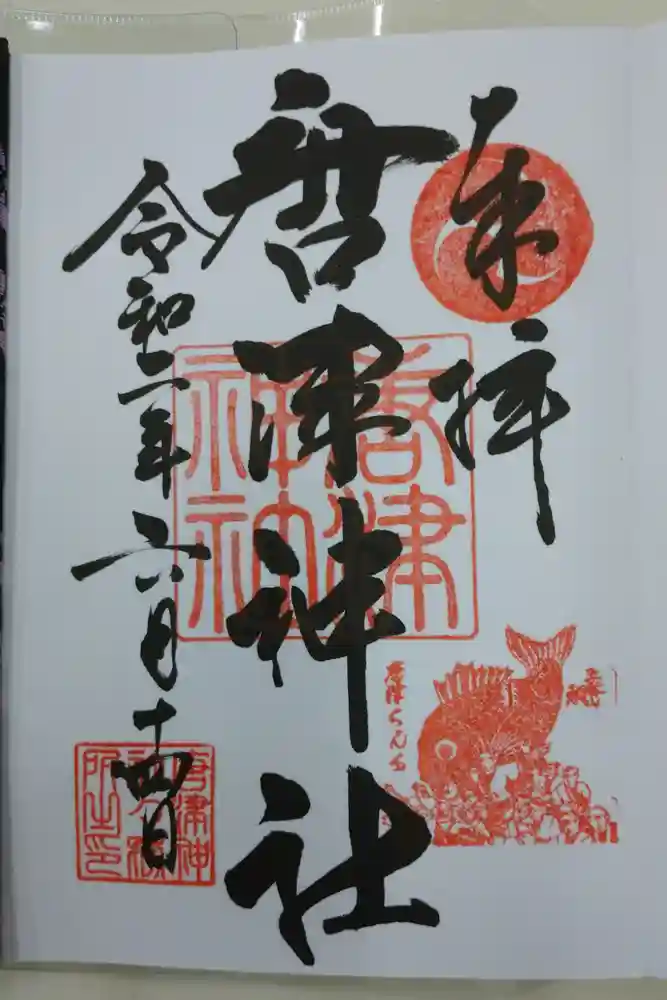 奉拝
唐津神社
令和二年六月十四日
唐津
神社
唐津くんち
唐津神
社社務
所之印